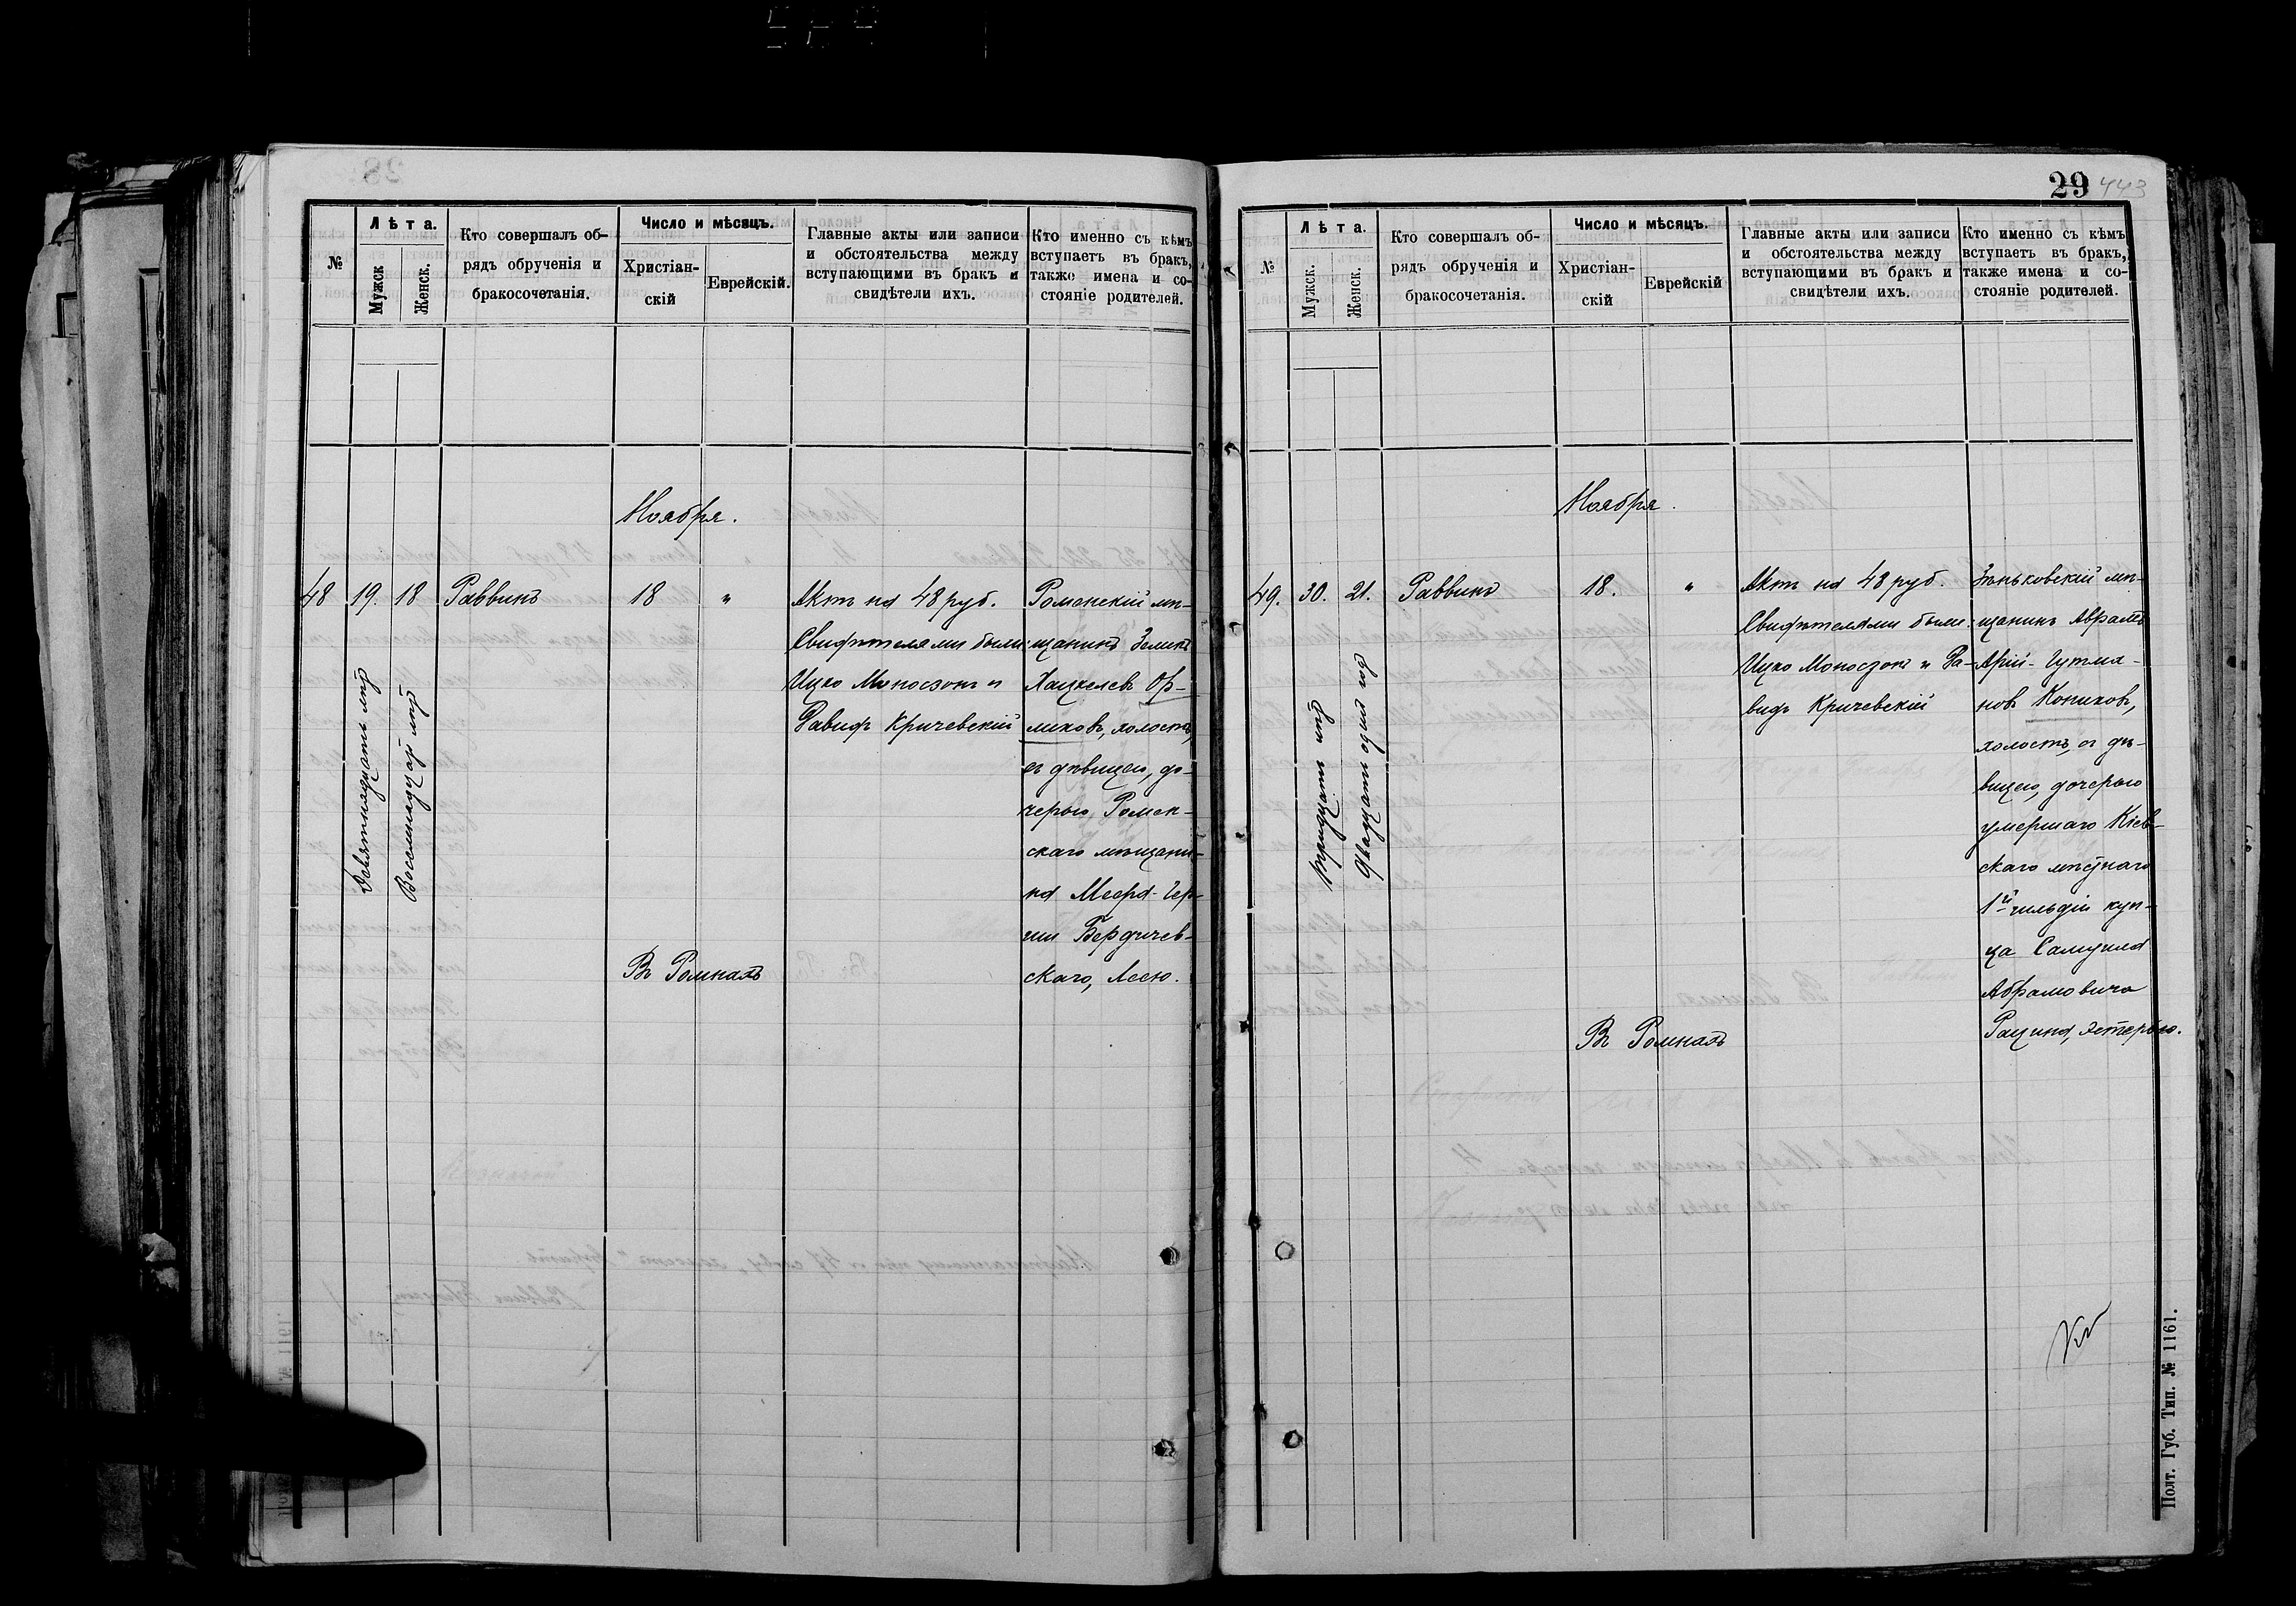 №
Лѣта.
Мужск
Женск.
Кто совершалъ об-
рядъ обрученія и
бракосочетанія.
Число и мѣсяцъ.
Христіан-
скій
Еврейскій.
Главные акты или записи
и обстоятельства между
вступающими въ бракъ и
свидѣтели ихъ.
Кто именно съ кѣмъ
вступаетъ въ бракъ,
также имена и со-
стояніе родителей.
Ноября.
48
19.
18
Девятнадцать лѣтъ
Восемнадцать лѣтъ
Раввинъ
18
"
Актъ на 48 руб.
Свидѣтелями были:
Ицко Моносзонъ и
Давидъ Кричевскій
Роменскій мѣ-
щанинъ Зеликъ
Хацкелевъ Ор-
ликовъ, холостъ,
съ дѣвицею, до-
черью Ромен-
скаго мѣщани-
на Меера-Гер-
ши Бердичев-
скаго, Лею.
Въ Ромнахъ
29
443
№
Лѣта.
Мужск.
Женск.
Кто совершалъ об-
рядъ обрученія и
бракосочетанія.
Число и мѣсяцъ.
Христіан-
скій
Еврейскій
Главные акты или записи
и обстоятельства между
вступающими въ бракъ и
свидѣтели ихъ.
Кто именно съ кѣмъ
вступаетъ въ бракъ,
также имена и со-
стояніе родителей.
Ноября.
49.
30.
21.
Тридцать лѣтъ
Двадцать одинъ годъ
Раввинъ
18.
"
Актъ на 48 руб.
Свидѣтелями были:
Ицко Моносзонъ и Да-
видъ Кричевскій
Зѣньковскій мѣ-
щанинъ Абрамъ
Арій-Гутма-
новъ Копиковъ,
холостъ, съ дѣ-
вицею, дочерью
умершаго Кіев-
скаго мѣстнаго
1й гильдіи куп-
ца Самуила
Абрамовича
Рацина, Эстерью.
Въ Ромнахъ
Полт. Губ. Тип. № 1161.